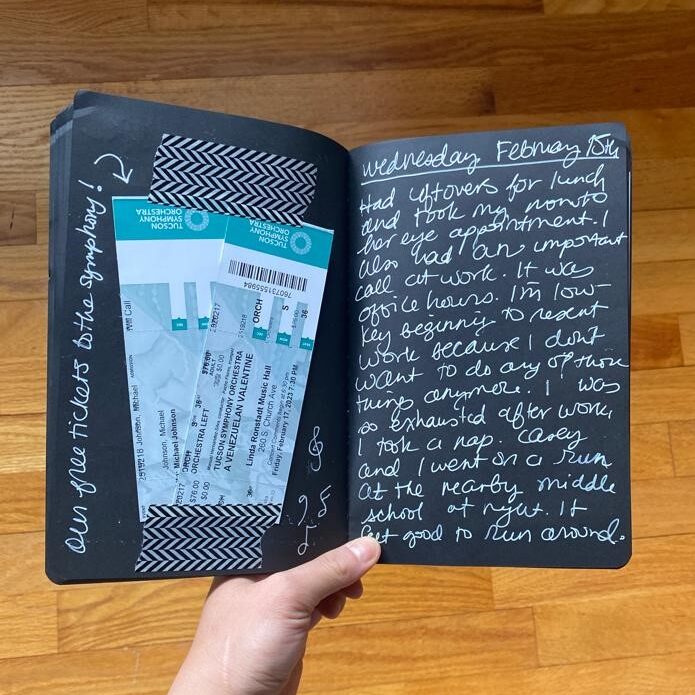 our free tickets to the symphony!
TUCSON
SYMPHONY
ORCHESTRA
TUCSON
SYMPHONY
ORCHESTRA
Will Call
2519218 Johnson, Michael
Johnson, Michael
Michael Johnson
ORCH
$76.00
$0.00
ORCHESTRA LEFT
TUCSON SYMPHONY ORCHESTRA
A VENEZUELAN VALENTINE
Linda Ronstadt Music Hall
260 S. Church Ave
Friday, February 17, 2023 7:30 PM
ORCH
S
36
76073155984
wednesday February 15th
Had leftovers for lunch
and took my mom to
her eye appointment. I
also had an important
call at work. It was
office hours. I'm low-
key beginning to resent
work because I don't
want to do any of those
things anymore. I was
so exhausted after work,
I took a nap. Carey
and I went on a run
at the nearby middle
school at night. It
felt good to run around.